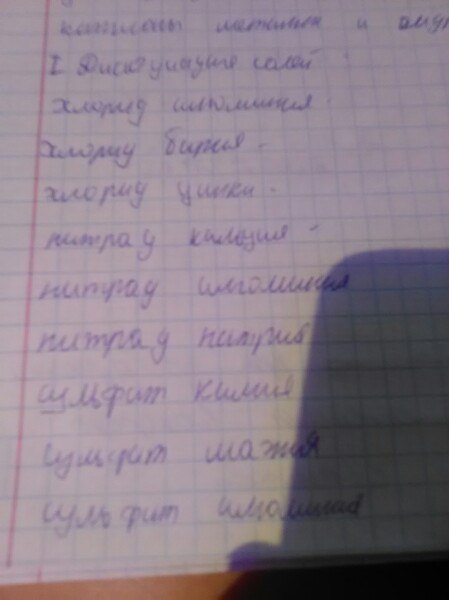 катионы металла и
I Диссоциация солей
хлорид алюминия
хлорид бария
хлорид цинка
нитрад кальция
нитрад алюминия
нитрад натрия
сульфит калия
сульфит магния
сульфит алюминия